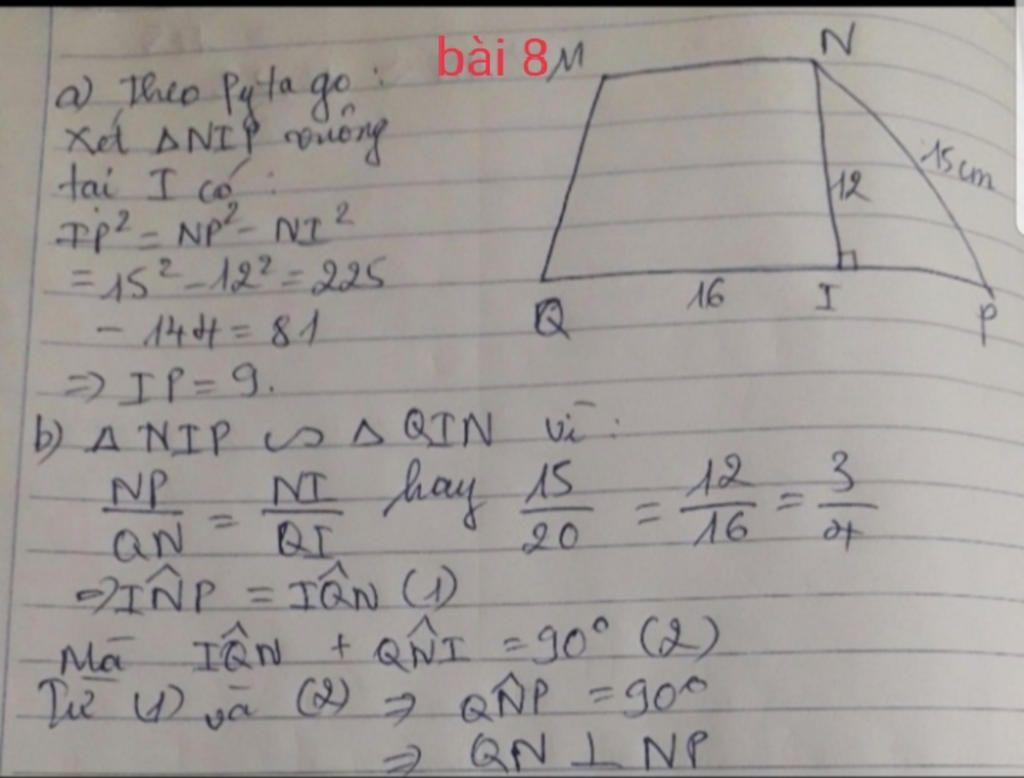 bài 8
a) Theo Pytago:
Xét ΔNIP vuông
tại I có:
IP² = NP² - NI²
= 15² - 12² = 225
- 144 = 81
=> IP = 9.
M
N
15cm
12
16
Q
I
P
b) Δ NIP ∽ Δ QIN vì:
NP/QN = NI/QI hay 15/20 = 12/16 = 3/4
=> IN̂P = IQ̂N (1)
Mà IQ̂N + QN̂I = 90° (2)
Từ (1) và (2) => QN̂P = 90°
=> QN ⊥ NP